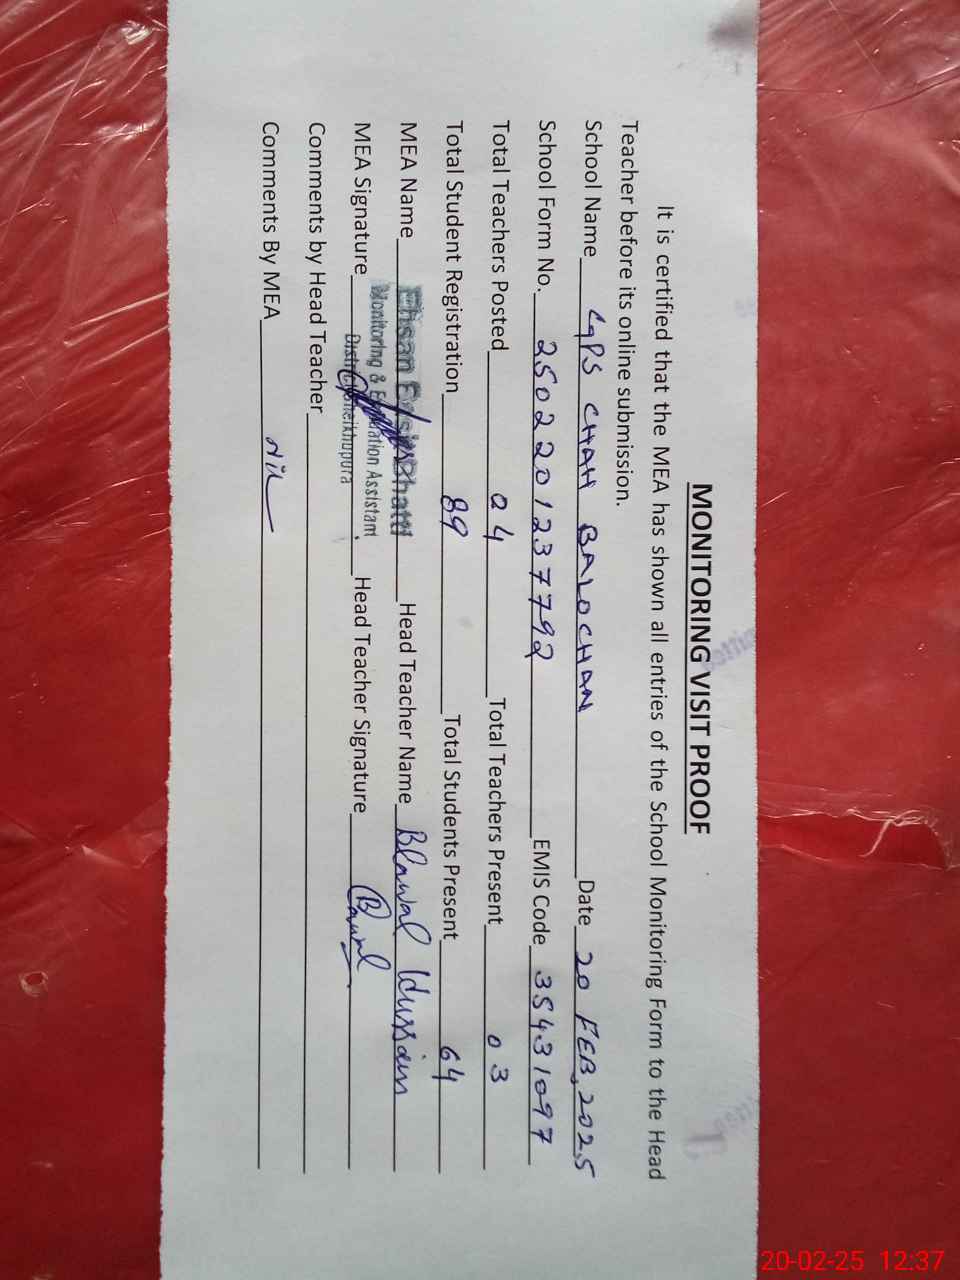 MONITORING VISIT PROOF
It is certified that the MEA has shown all entries of the School Monitoring Form to the Head
Teacher before its online submission.
School Name GPS CHAH BALOCHAN Date 20 FEB, 2025
School Form No. 2502201237792 EMIS Code 35431097
Total Teachers Posted 04 Total Teachers Present 03
Total Student Registration 89 Total Students Present 64
MEA Name Ehsan Bhatti Head Teacher Name Blawal Hussain
Monitoring & Evaluation Assistant
MEA Signature Head Teacher Signature
District Sheikhupura
Comments by Head Teacher
Comments By MEA Nil
20-02-25 12:37